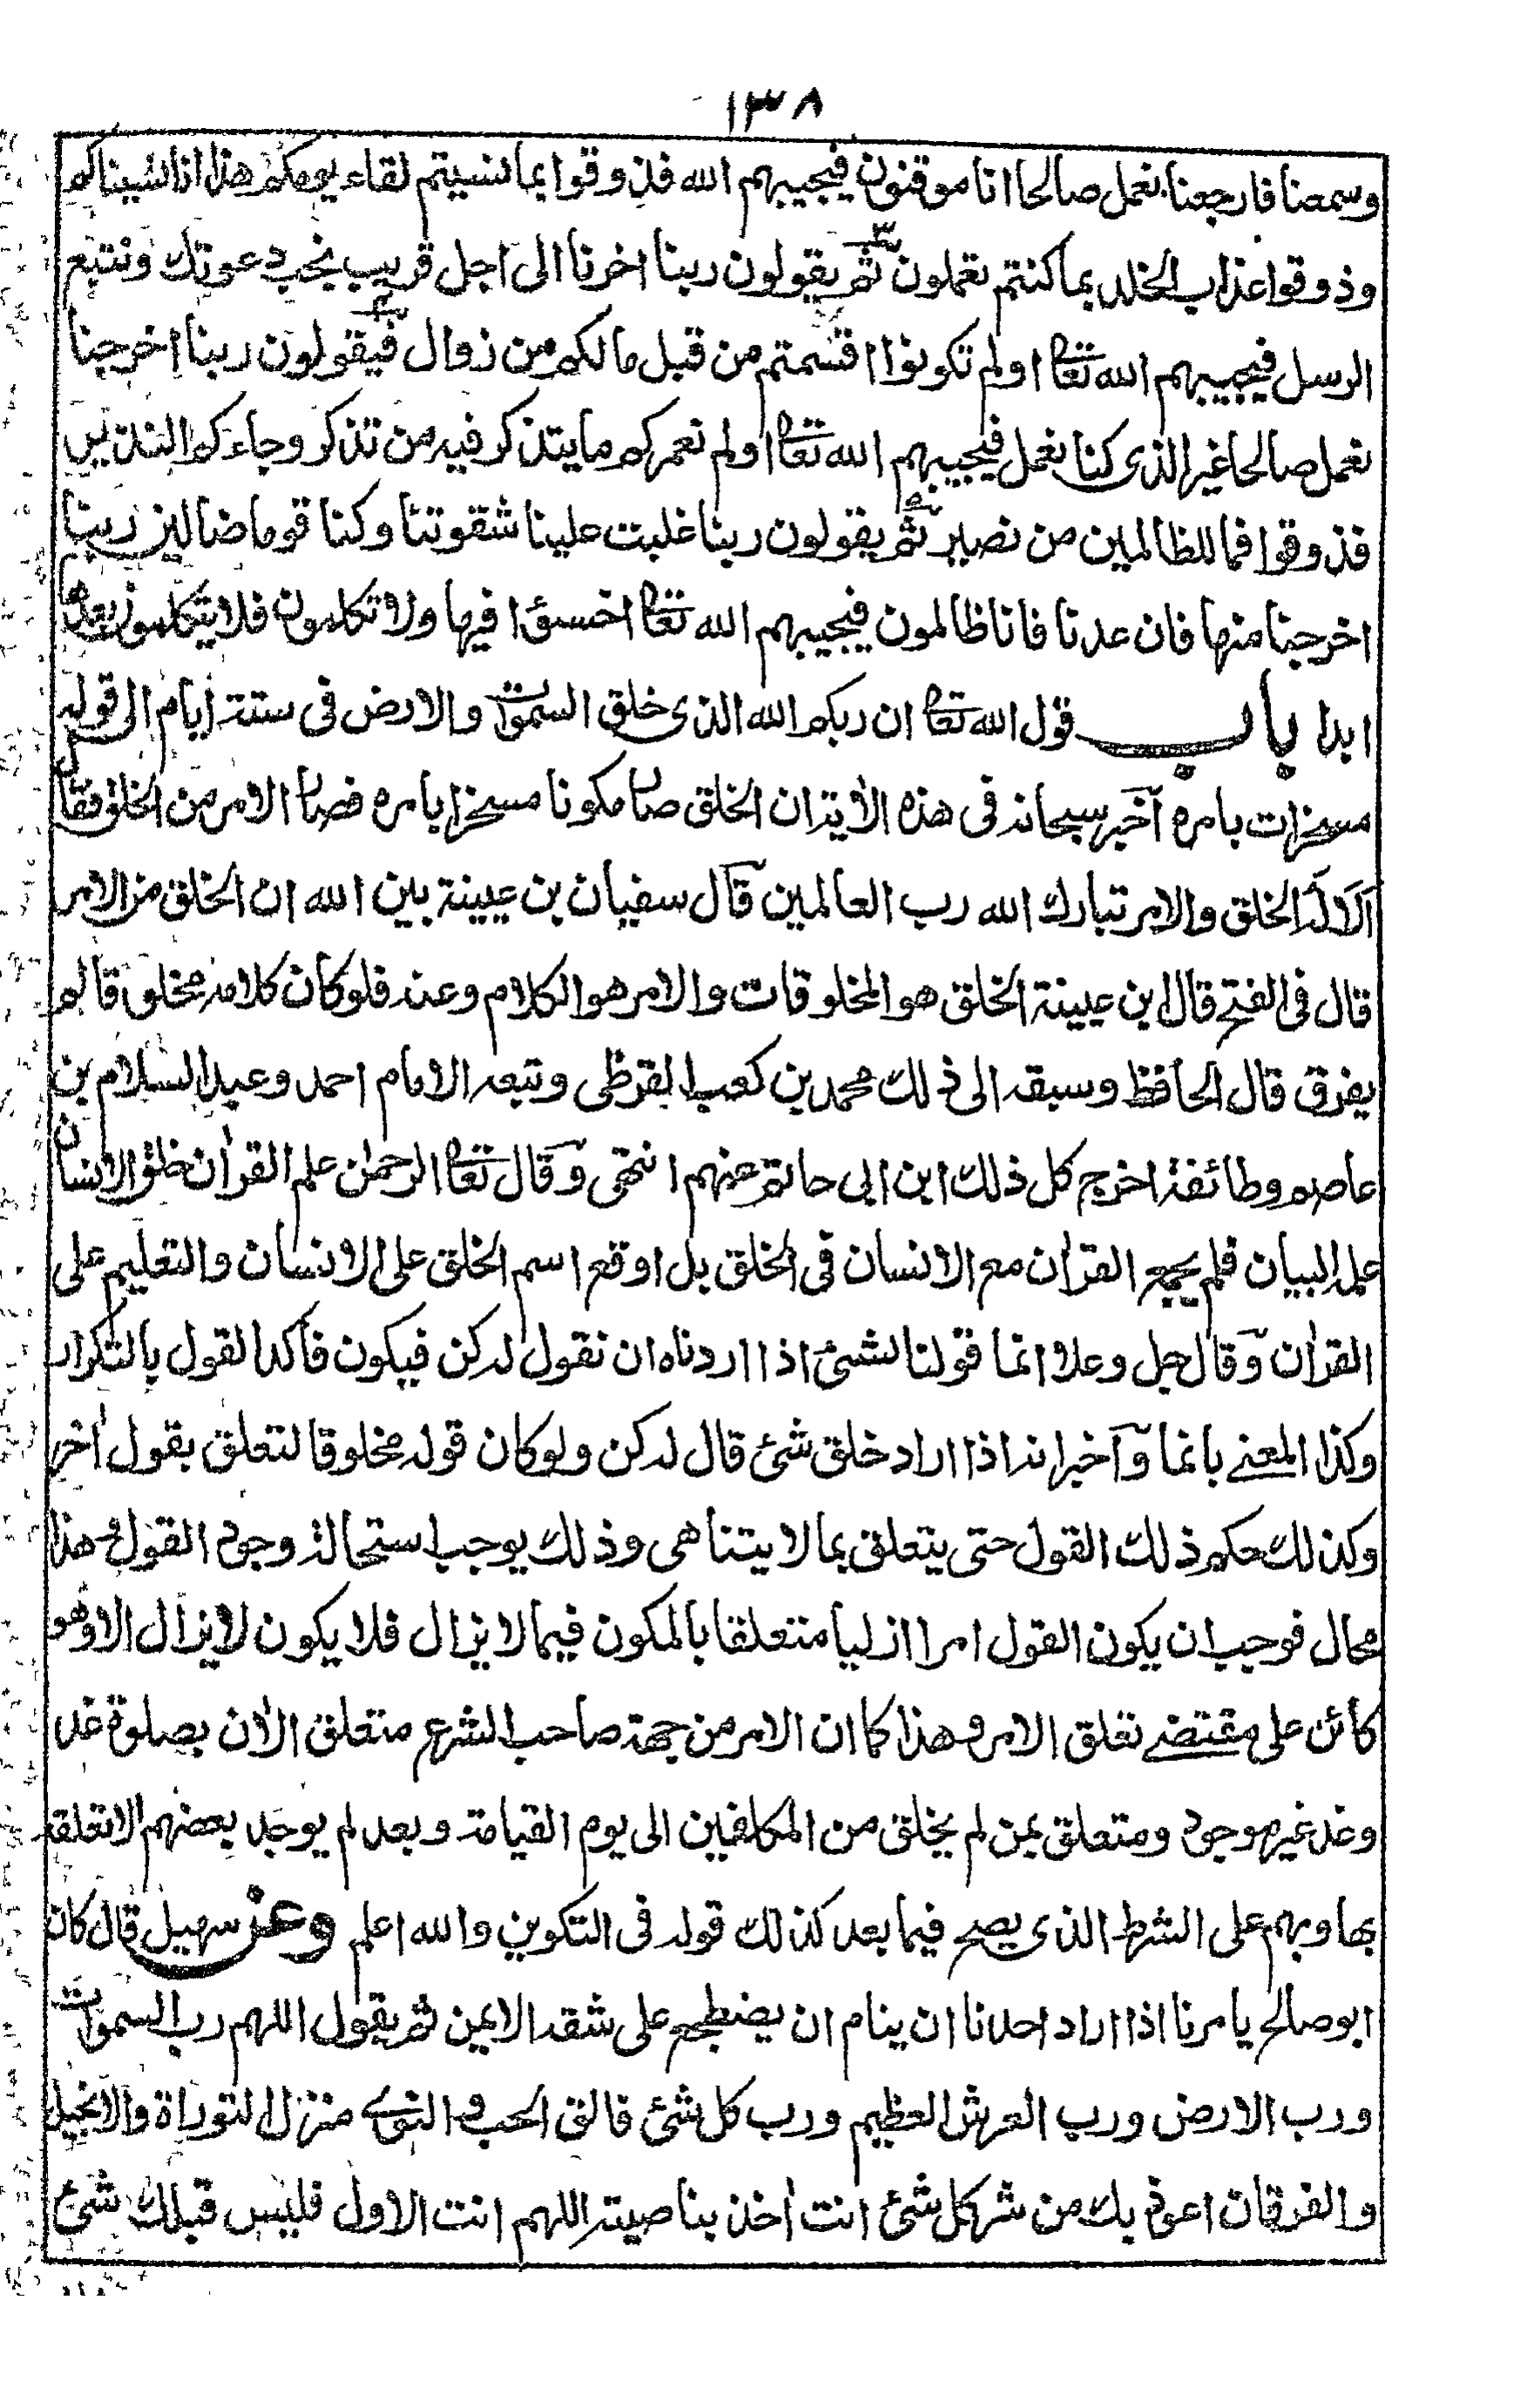 ١٣٨
وسمعنا فارجعنا نعمل صالحا انا موقنون فيجيبهم الله فذوقوا بما نسيتم لقاء يومكم هذا انا نسيناكم
وذوقوا عذاب الخلد بما كنتم تعملون ثم يقولون ربنا اخرنا الى اجل قريب نجب دعوتك ونتبع
الرسل فيجيبهم الله تعا اولم تكونوا اقسمتم من قبل مالكم من زوال فيقولون ربنا اخرجنا
نعمل صالحا غير الذى كنا نعمل فيجيبهم الله تعا اولم نعمركم ما يتذكر فيه من تذكر وجاءكم النذير
فذوقوا فما للظالمين من نصير ثم يقولون ربنا غلبت علينا شقوتنا وكنا قوما ضالين ربنا
اخرجنا منها فان عدنا فانا ظالمون فيجيبهم الله تعا اخسئوا فيها ولا تكلمون فلا يتكلمون بعدها
ابدا باب قول الله تعا ان ربكم الله الذى خلق السموات والارض فى ستة ايام الى قوله
مسخرات بامره آخبر سبحانه فى هذه الآية ان الخلق صار مكونا مسخرا بامره فصار الامر من الخلق فقال
آلا له الخلق والامر تبارك الله رب العالمين قال سفيان بن عيينة بين الله ان الخلق من الامر
قال فى الفتح قال ابن عيينة الخلق هو المخلوقات والامر هو الكلام وعنه فلو كان كلامه مخلوقا لم
يفرق قال الحافظ وسبقه الى ذلك محمد بن كعب القرظى وتبعه الامام احمد وعبد السلام بن
عاصم وطائفة اخرج كل ذلك ابن ابى حاتم عنهم انتهى وقال تعا الرحمن علم القرآن خلق الانسان
علمه البيان فلم يجمع القرآن مع الانسان فى الخلق بل اوقع اسم الخلق على الانسان والتعليم على
القرآن وقال جل وعلا انما قولنا لشئ اذا اردناه ان نقول له كن فيكون فاكد القول بالتكرار
وكذا المعنے بانما وآخبر انه اذا اراد خلق شئ قال له كن ولو كان قوله مخلوقا لتعلق بقول آخر
وكذلك حكم ذلك القول حتى يتعلق بما لا يتناهى وذلك يوجب استحالة وجود القول وهذا
محال فوجب ان يكون القول امرا ازليا متعلقا بالمكون فيما لا يزال فلا يكون لا يزال الا وهو
كائن على مقتضے تعلق الامر وهذا كما ان الامر من جهة صاحب الشرع متعلق الآن بصلوة غد
وغد غير موجود ومتعلق بمن لم يخلق من المكلفين الى يوم القيامة وبعد لم يوجد بعضهم الا تعلقه
بها وبهم على الشرط الذى يصح فيما بعد كذلك قوله فى التكوين والله اعلم وعن سهيل قال كان
ابو صالح يامرنا اذا اراد احدنا ان ينام ان يضطجع على شقه الايمن ثم يقول اللهم رب السموات
ورب الارض ورب العرش العظيم ورب كل شئ فالق الحب والنوے منزل التوراة والانجيل
والفرقان اعوذ بك من شر كل شئ انت آخذ بناصيته اللهم انت الاول فليس قبلك شئ